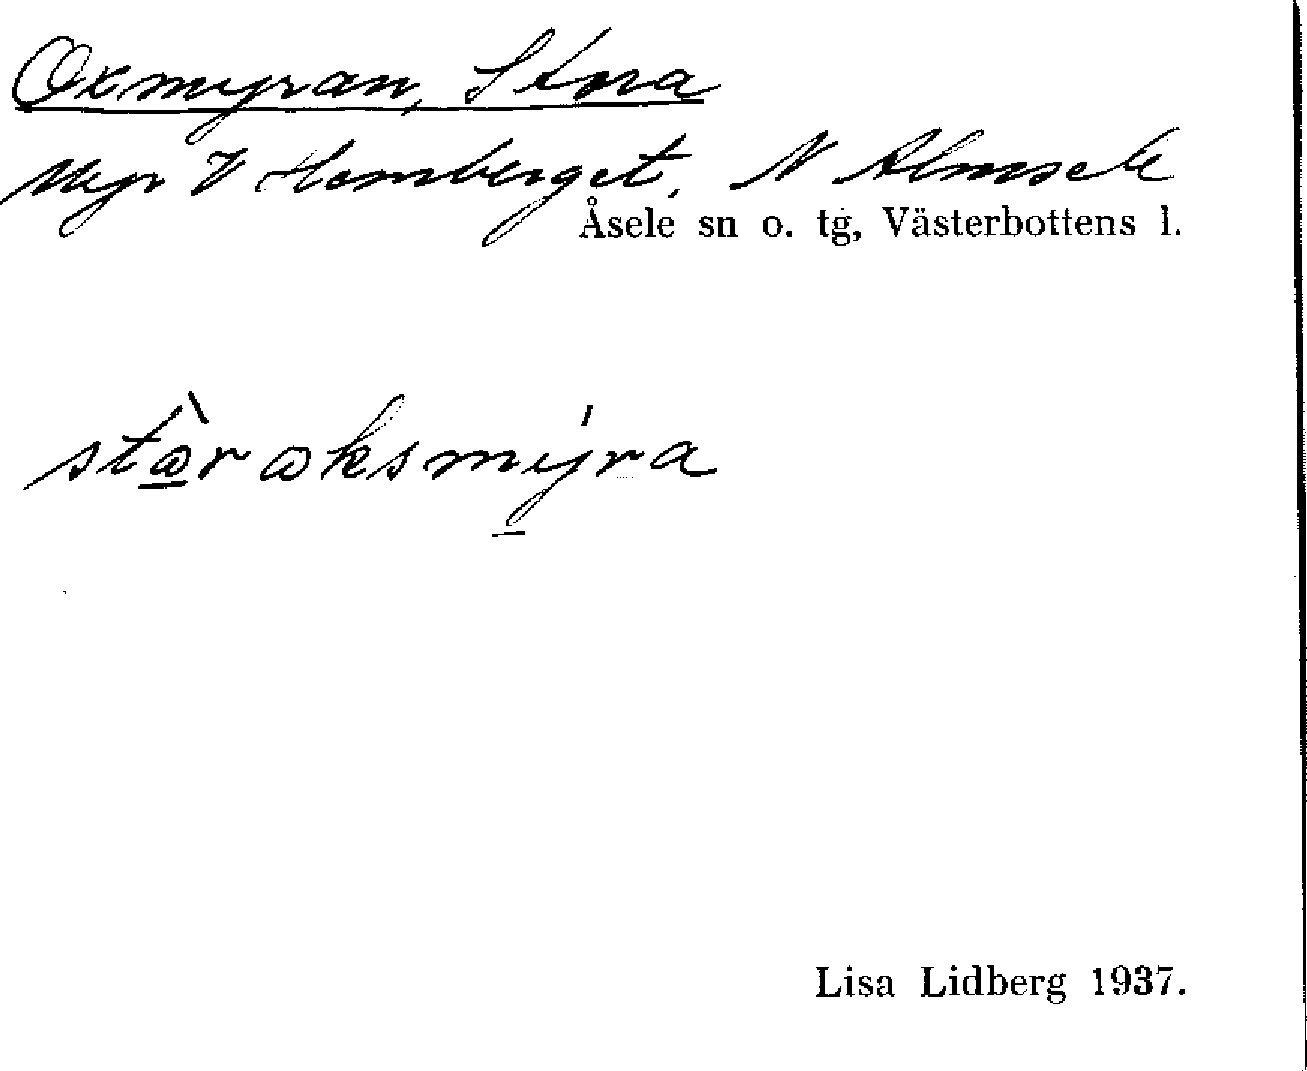 Oxmyran, Stora
Myr V Hornberget, N Almsele
Åsele sn o. tg, Västerbottens l.
stɷ̠̀r ɷksmý̠ra
Lisa Lidberg 1937.